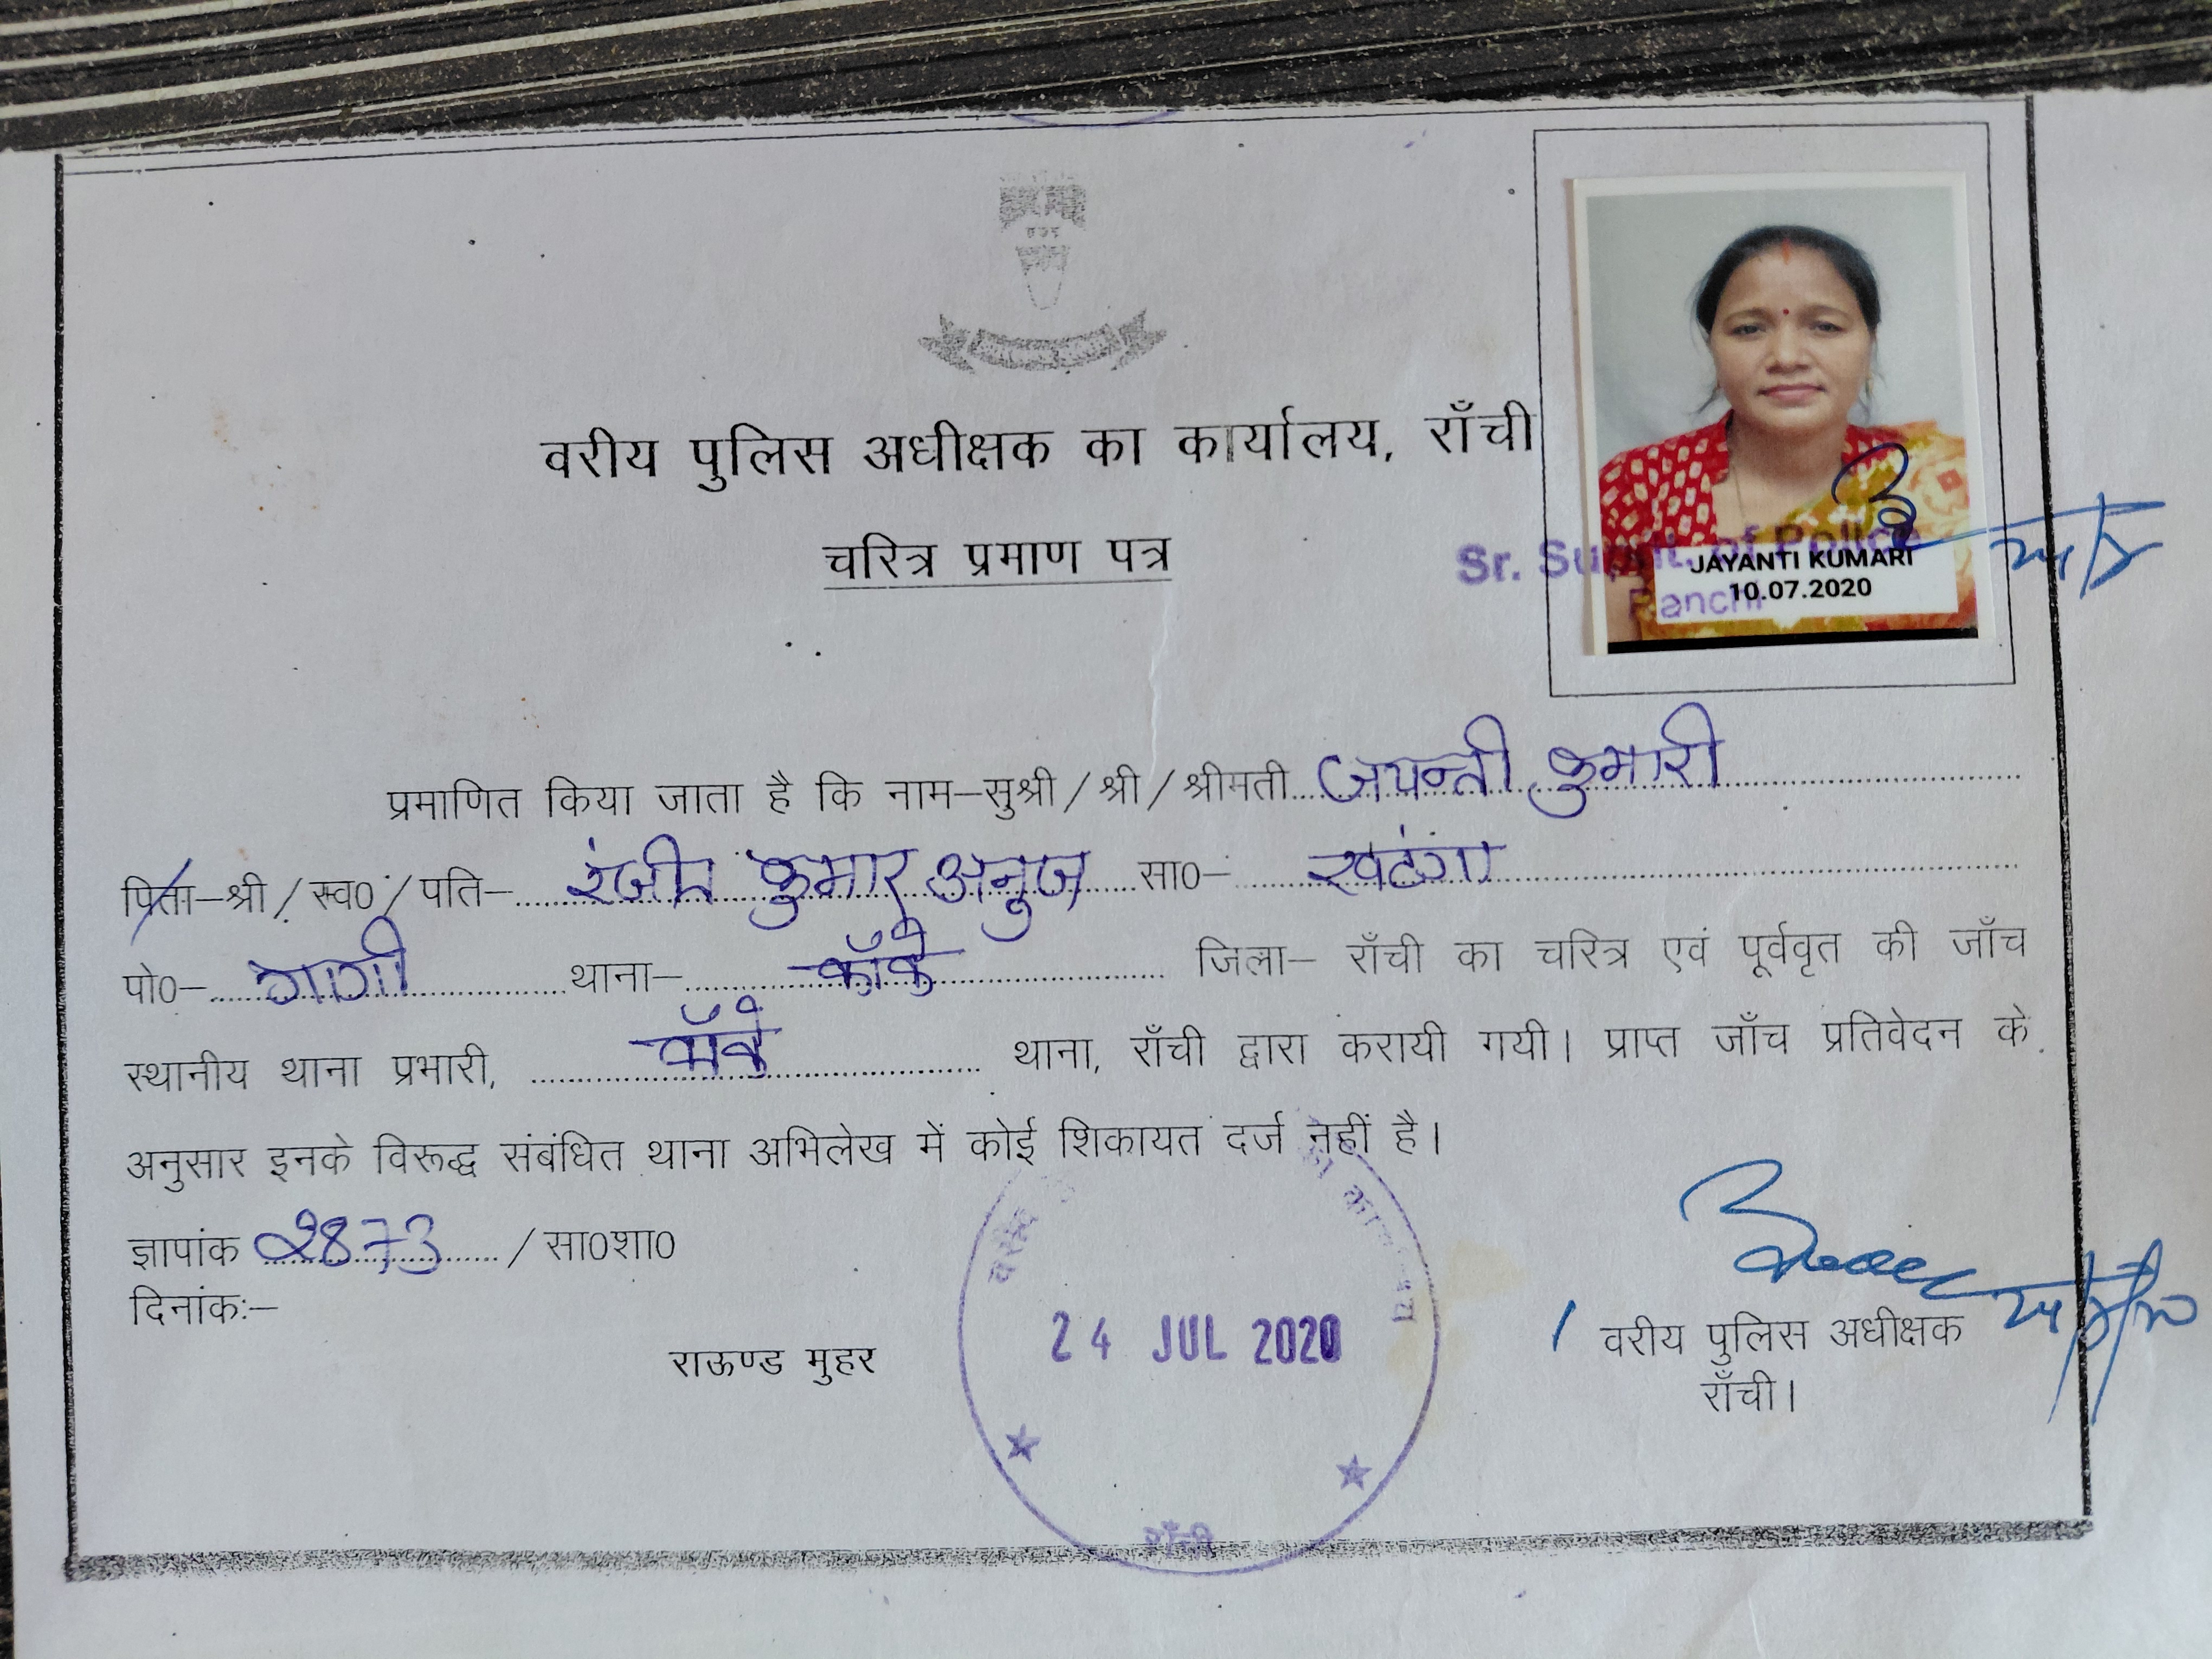 वरीय पुलिस अधीक्षक का कार्यालय, राँची
चरित्र प्रमाण पत्र
Sr. Supdt. of Police
Ranchi
JAYANTI KUMARI
10.07.2020
प्रमाणित किया जाता है कि नाम–सुश्री / श्री / श्रीमती जयन्ती कुमारी
पिता–श्री / स्व0 / पति– रंजीत कुमार अनुज सा0– खटंगा
पो0– गागी थाना– काँके जिला– राँची का चरित्र एवं पूर्ववृत की जाँच
स्थानीय थाना प्रभारी, काँके थाना, राँची द्वारा करायी गयी। प्राप्त जाँच प्रतिवेदन के
अनुसार इनके विरूद्ध संबंधित थाना अभिलेख में कोई शिकायत दर्ज नहीं है।
ज्ञापांक 2873 / सा0शा0
दिनांक:–
राऊण्ड मुहर
24 JUL 2020
राँची
वरीय पुलिस अधीक्षक
राँची।